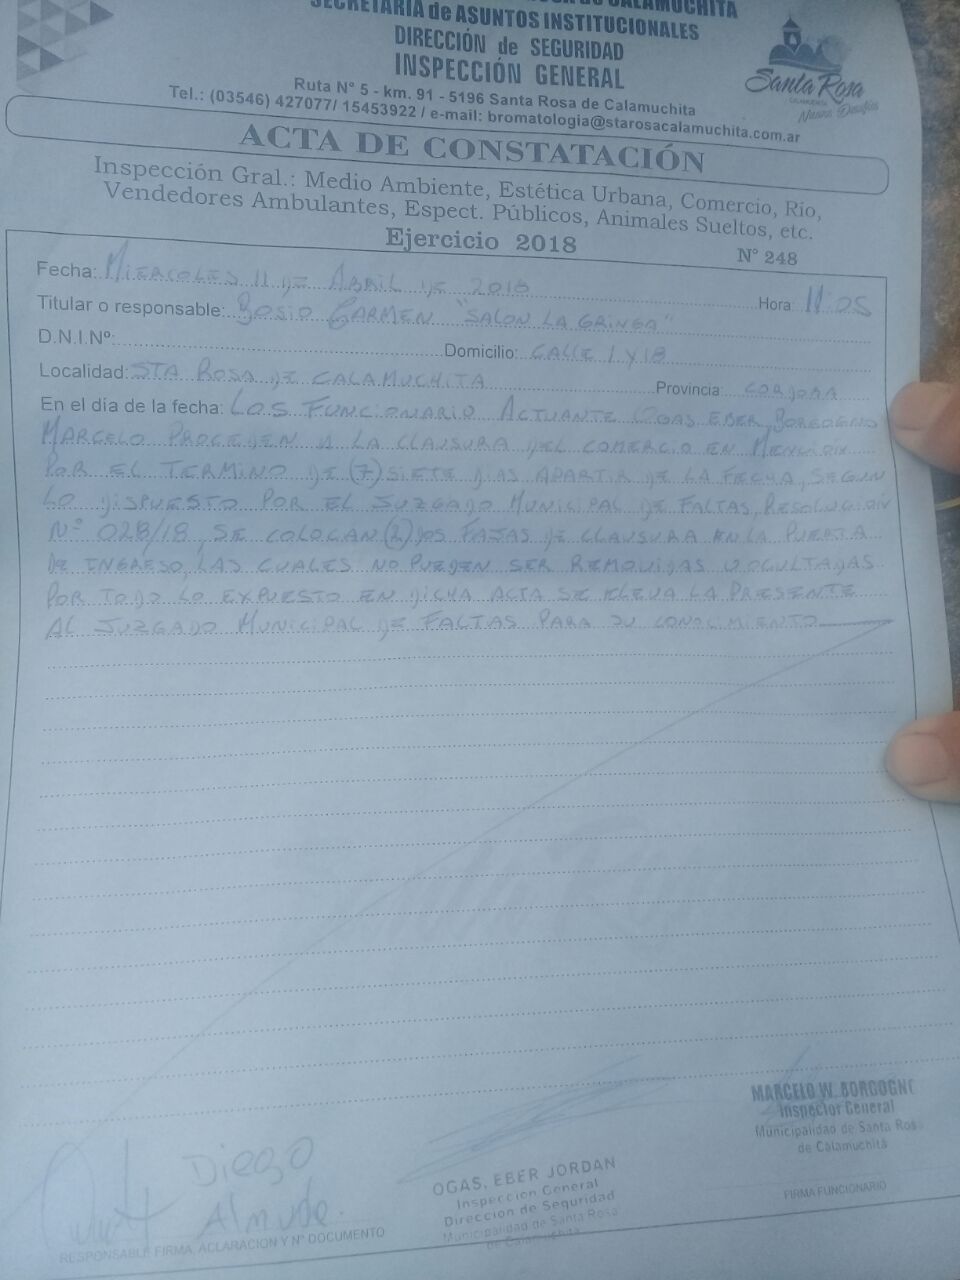 CALAMUCHITA
SECRETARIA de ASUNTOS INSTITUCIONALES
DIRECCIÓN de SEGURIDAD
INSPECCIÓN GENERAL
Ruta N° 5 - km. 91 - 5196 Santa Rosa de Calamuchita
Tel.: (03546) 427077/ 15453922 / e-mail: bromatologia@starosacalamuchita.com.ar
Santa Rosa
Nuevos Desafíos
ACTA DE CONSTATACIÓN
Inspección Gral.: Medio Ambiente, Estética Urbana, Comercio, Río,
Vendedores Ambulantes, Espect. Públicos, Animales Sueltos, etc.
Ejercicio 2018
N° 248
Fecha: MIERCOLES 11 DE ABRIL DE 2018 Hora: 11:05
Titular o responsable: BOSIO CARMEN "SALON LA GRINGA"
D.N.I.Nº: Domicilio: CALLE 1 Y 18
Localidad: STA ROSA DE CALAMUCHITA Provincia: CORDOBA
En el día de la fecha: LOS FUNCIONARIO ACTUANTE OGAS EBER, BORGOGNO
MARCELO PROCEDEN A LA CLAUSURA DEL COMERCIO EN MENCION
POR EL TERMINO DE (7) SIETE DIAS APARTIR DE LA FECHA, SEGUN
LO DISPUESTO POR EL JUZGADO MUNICIPAL DE FALTAS, RESOLUCION
N° 028/18, SE COLOCAN (2) DOS FAJAS DE CLAUSURA EN LA PUERTA
DE INGRESO, LAS CUALES NO PUEDEN SER REMOVIDAS U OCULTADAS
POR TODO LO EXPUESTO EN DICHA ACTA SE ELEVA LA PRESENTE
AL JUZGADO MUNICIPAL DE FALTAS PARA SU CONOCIMIENTO
Diego
RESPONSABLE FIRMA, ACLARACION Y Nº DOCUMENTO
OGAS, EBER JORDAN
Inspeccion General
Direccion de Seguridad
Municipalidad de Santa Rosa
de Calamuchita
MARCELO W. BORGOGNO
Inspector General
Municipalidad de Santa Rosa
de Calamuchita
FIRMA FUNCIONARIO